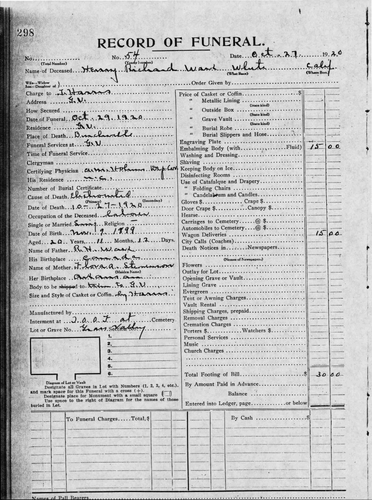 298
RECORD OF FUNERAL.
No. No. 54 Date Oct-27 1920
(Total Number) (Yearly Number)
Name of Deceased Henry Richard Ward White Calif
(What Race) (Where Born)
Order Given by
Charge to J. Harris
Address G.V.
Date of Funeral, Oct. 29, 1920
Residence G.V.
Place of Death
Funeral Services at G.V
Time of Funeral Service
Clergyman
Certifying Physician
His Residence
Number of Burial Certificate
Cause of Death,
(Primary) (Secondary)
Date of Death 10-27-1920
Occupation of the Deceased laborer
Single or Married Religion
Date of Birth Nov. 9, 1899
Aged 20 Years 11 Months 12 Days
Name of Father R. H. Ward
His Birthplace
Name of Mother Stevenson
(Maiden Name)
Her Birthplace
Body to be shipped to G.V
Size and Style of Casket or Coffin by Harris
Manufactured by
Interment at I.O.O.F. at Cemetery
Lot or Grave No. Grass Valley
1.
2.
3.
4.
5.
6.
7.
8.
Diagram of Lot or Vault
Designate all Graves in Lot with Numbers (1, 2, 3, 4, etc.),
and mark space for this Funeral with a cross (+).
Designate place for Monument with a small square
Use space to the right of Diagram for the names of those
buried in Lot.
Price of Casket or Coffin $
" Metallic Lining
(State kind)
" Outside Box
(State kind)
" Grave Vault
(State kind)
" Burial Robe
(State kind)
" Burial Slippers and Hose
Engraving Plate
Embalming Body (with Fluid) 15 00
Washing and Dressing
Shaving
Keeping Body on Ice
Disinfecting Rooms
Use of Catafalque and Drapery
" Folding Chairs
" Candelabrum and Candles
Gloves $ Crape $
Door Crape $ Canopy $
Hearse
Carriages to Cemetery @ $
Automobiles to Cemetery @ $
Wagon Deliveries 15 00
City Calls (Coaches)
Death Notices in Newspapers
(Names of Newspapers)
Flowers
Outlay for Lot
Opening Grave or Vault
Lining Grave
Evergreen
Tent or Awning Charges
Vault Rental
Shipping Charges, prepaid
Removal Charges
Cremation Charges
Porters $ Watchers $
Personal Services
Music
Church Charges
Total Footing of Bill $ 30 00
By Amount Paid in Advance
Balance
Entered into Ledger, page or below
To Funeral Charges Total, $ By Cash
Names of Pall Bearers